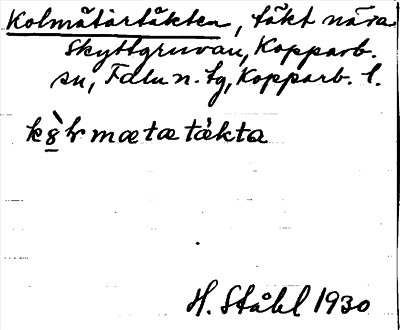 Kolmätartäkten, täkt nära
Skyttgruvan, Kopparb.
sn, Falu n. tg, Kopparb. l.
mætætäkta
H. Ståhl 1930